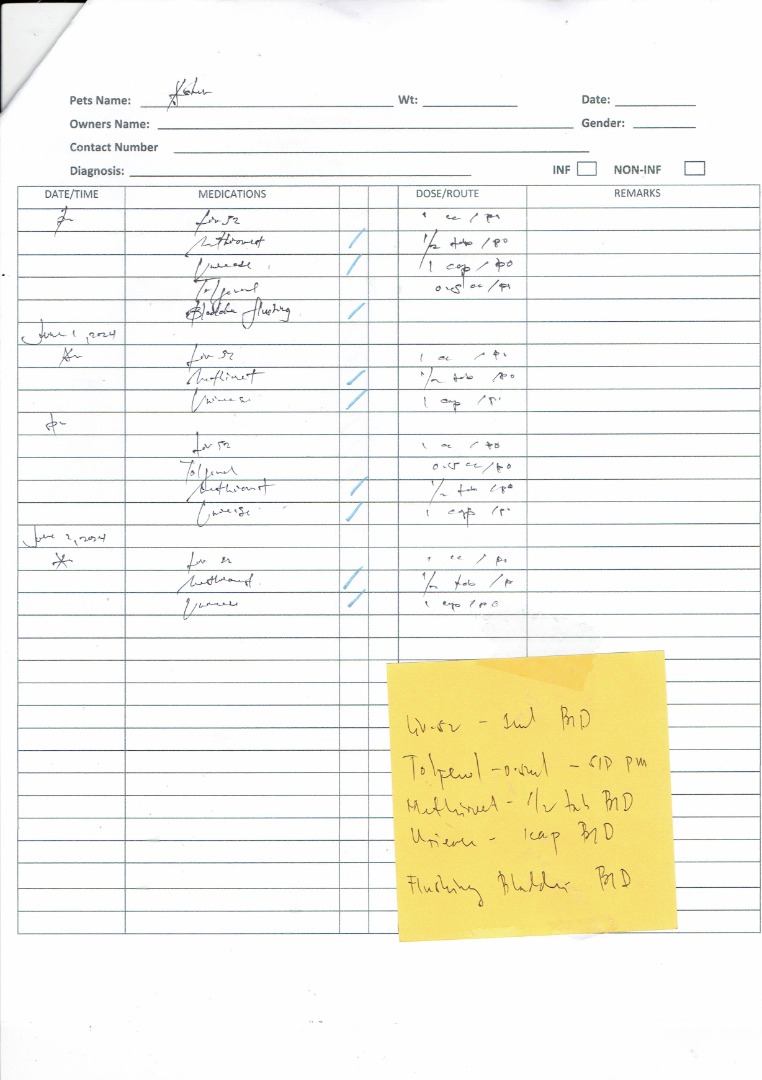 Pets Name: Wt: Date:
Owners Name: Gender:
Contact Number
Diagnosis: INF NON-INF
DATE/TIME MEDICATIONS DOSE/ROUTE REMARKS
pm liv 52 1 cc / po
Methiovet 1/2 tab / po
1 cap / po
Tolfenol 0.5 cc / po
Bladder flushing
June 1, 2024
Am liv 52 1 cc / po
Methiovet 1/2 tab po
1 cap / po
pm
liv 52 1 cc / po
Tolfenol 0.5 cc / po
Methiovet 1/2 tab / po
1 cap / po
June 2, 2024
Am liv 52 1 cc / po
Methiovet 1/2 tab / po
1 cap / po
Liv-52 - 1ml BID
Tolfenol - 0.5ml - SID pm
Methiovet - 1/2 tab BID
1cap BID
Flushing Bladder BID